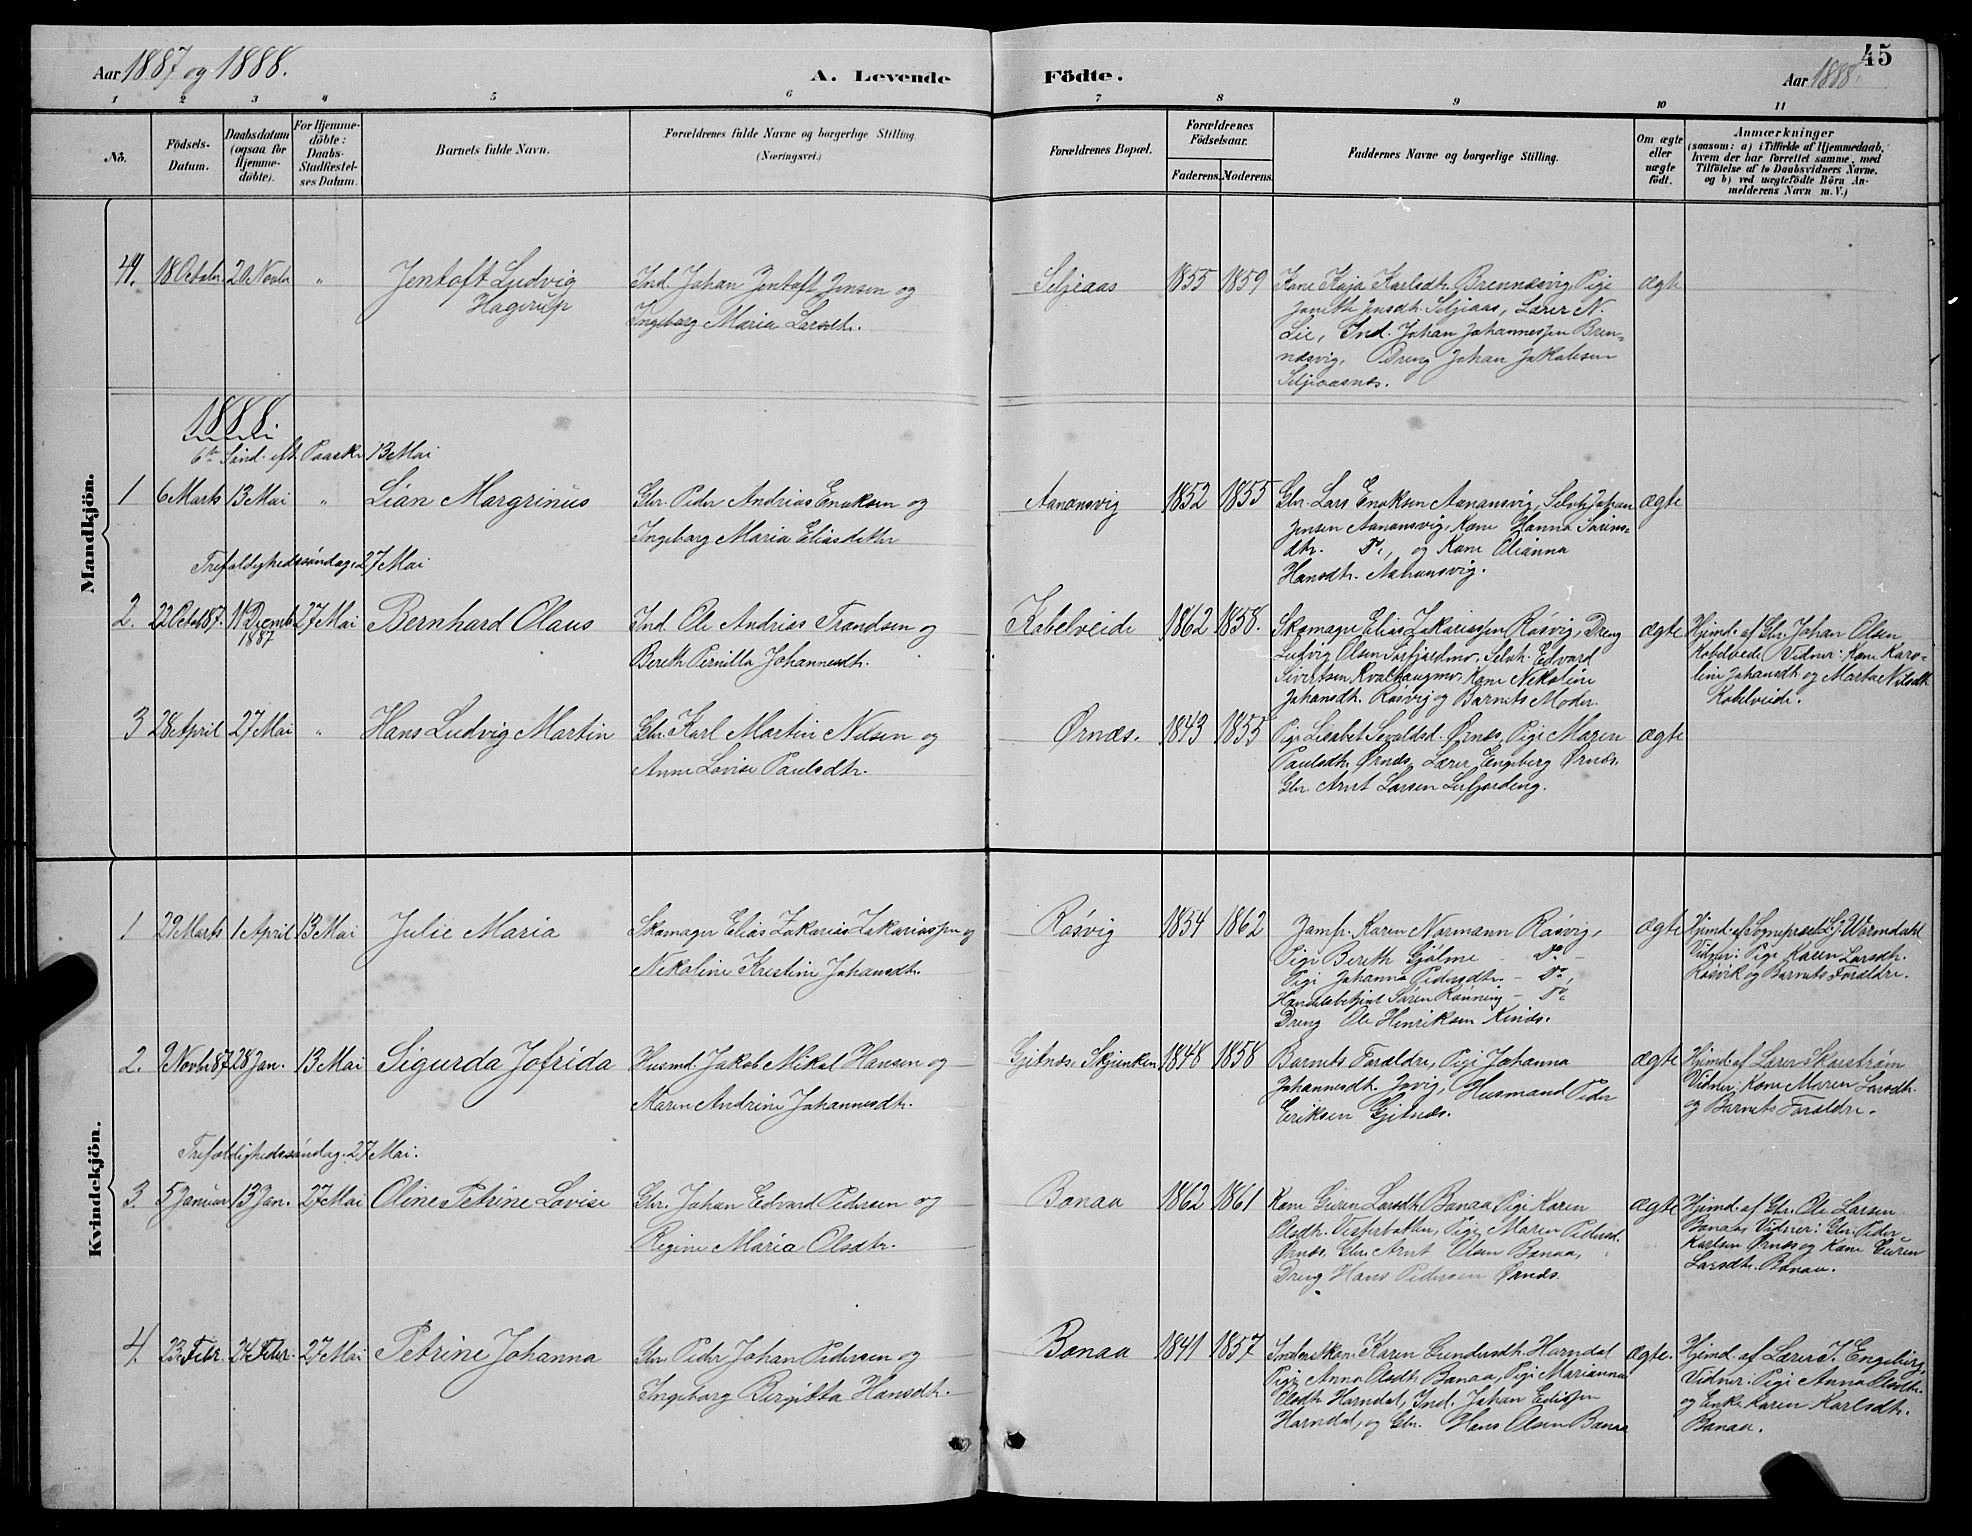 Aar 1887 og 1888.
A. Levende Födte.
Aar 1888.
45
1 2 3 4 5 6 7 8 9 10 11
No.
Födsels-Datum.
Daabsdatum (ogsaa for Hjemme-döbte).
For Hjemme-döbte: Daabs-Stadfæstel-ses Datum.
Barnets fulde Navn.
Forældrenes fulde Navne og borgerlige Stilling.
(Næringsvei.)
Forældrenes Bopæl.
Forældrenes Födselsaar.
Faderens. Moderens.
Faddernes Navne og borgerlige Stilling.
Om ægte eller uægte födt.
Anmærkninger
(saasom: a) i Tilfælde af Hjemmedaab,
hvem der har forrettet samme, med
Tilföielse af to Daabsvidners Navne,
og b) ved uægtefödte Börn An-
melderens Navn m.V.)
Mandkjön.
41. 18 Octobr. 20 Novbr " Jentoft Ludvig
Hagerup
Ind. Johan Jentoft Jensen og
Ingeborg Maria Larsdtr.
Siljeaas 1855 1859
Kone Kaja Karlsdtr. Brennæsvig, Pige
Janeth Jensdtr. Siljeaas, Lærer N.
Lie, Ind. Johan Johannessen Bren-
næsvig, Dreng Johan Jakobsen
Siljeaasnæs.
ægte
1888
6te Sönd. eft. Paaske 13 Mai
1 6 Marts 13 Mai " Lian Margrinus
Gbr. Peder Andrias Enoksen og
Ingeborg Maria Eliasdatter
Aanansvig 1852 1855
Gbr. Lars Enoksen Aanansvig, Selvej. Johan
Jensen Aanansvig, Kone Hanna Sörens-
dtr. Do, og Kone Olianna
Hansdtr. Aanansvig.
ægte
Trefoldighedssöndag, 27 Mai
2. 22 Octob 87. 11 Decmb. 1887 27 Mai Bernhard Olaus
Ind. Ole Andrias Trondsen og
Bereth Pernilla Johannesdtr.
Kobelveide 1862 1858.
Skomager Elias Zakariassen Rösvig, Dreng
Ludvig Olsen Sörfjordmo, Selvh. Edvard
Sivertsen Kvalhaugmo, Kone Nikoline
Johansdtr. Rösvig og Barnets Moder.
ægte
Hjmd. af Gbr. Johan Olsen
Kobelveide, Vidner: Kone Karo-
line Johansdtr og Marta Nilsdtr
Kobelveide.
3 28 April 27 Mai " Hans Ludvig Martin
Gbr. Karl Martin Nilsen og
Anne Lovise Paulsdtr.
Ørnæs. 1843 1855
Pige Lisabet Sevaldsd. Ørnæs, Pige Maren
Paulsdtr. Ørnæs, Lærer Engeberg Ørnæs.
Gbr. Arnt Larsen
ægte
Kvindekjön.
1 29 Marts 1 April 13 Mai Julie Maria
Skomager Elias Zakarias Zakariassen og
Nikoline Kristine Johansdtr.
Rösvig 1854 1862
Jomfr. Karen Normann Rösvig,
Pige Bereth Gjölme - Do -
Pige Johanna Pedersdtr. - Do,
Handelsbetjent Sören Rönning - Do
Dreng Ole Henriksen Kinds.
ægte
Hjmd. af Sogneprest L. J. Wormdahl
Vidner: Pige Karen Larsdtr.
Rösvik og Barnets Forældre.
2. 9 Novbr 87 28 Jan. 13 Mai Sigurda Jofrida
Husmd. Jakob Mikal Hansen og
Maren Andrine Johannesdtr.
Gjitnæs, Skjevken 1848 1858
Barnets Forældre, Pige Johanna
Johannesdtr. Juvig, Husmand Peder
Eriksen Gjitnæs.
ægte
Hjmd. af Lærer Skarström
Vidner: Kone Maren Larsdtr.
og Barnets Forældre.
Trefoldighedssöndag. 27 Mai.
3. 5 Januar 13 Jan. 27 Mai Oline Petrine Lovise
Gbr. Johan Edvard Pedersen og
Regine Maria Olsdtr.
Bonaa 1862 1861
Kone Guren Larsdtr. Bonaa, Pige Karen
Olsdtr. Vesterbotten, Pige Maren Pedersd.
Ørnæs, Gbr. Arnt Olsen Bonaa,
Dreng Hans Pedersen Ørnæs.
ægte
Hjmd. af Gbr. Ole Larsen
Bonaa, Vidner: Gbr. Peder
Karlsen Ørnæs og Kone Guren
Larsdtr. Bonaa.
4. 23 Febr. 24 Febr. 27 Mai Petrine Johanna
Gbr. Peder Johan Pedersen og
Ingeborg Birgitta Hansdtr.
Bonaa 1841 1857
Inderstkone Karen Gundersdtr. Horndal
Pige Anna Olsdtr. Bonaa, Pige Marianna
Olsdtr. Horndal, Ind. Johan
Horndal, og Gbr. Hans Olsen Bonaa
ægte.
Hjmd. af Lærer J. Engeberg,
Vidner: Pige Anna Olsdtr.
og Enke Karen Karlsdtr.
Bonaa.